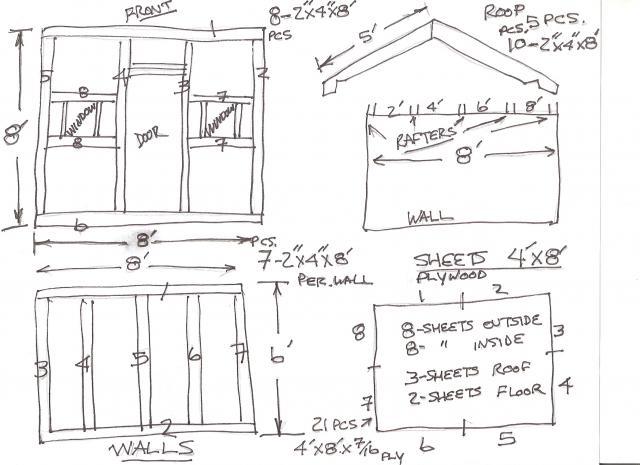 FRONT
8-2"x4"x8'
PCS
8'
5
4
2
8
7
WINDOW
DOOR
WINDOW
8
7
6
8'
ROOF 5 PCS.
PCS. 10-2"x4"x8'
5'
2' 4' 6' 8'
RAFTERS
8'
WALL
8'
PCS.
7-2"x4"x8'
PER. WALL
1
3 4 5 6 7
6'
2
WALLS
SHEETS 4'x8'
PLYWOOD
1 2
8
3
8-SHEETS OUTSIDE
8- " INSIDE
3-SHEETS ROOF
2-SHEETS FLOOR
7
4
21 PCS
4'x8'x7/16 PLY
6 5